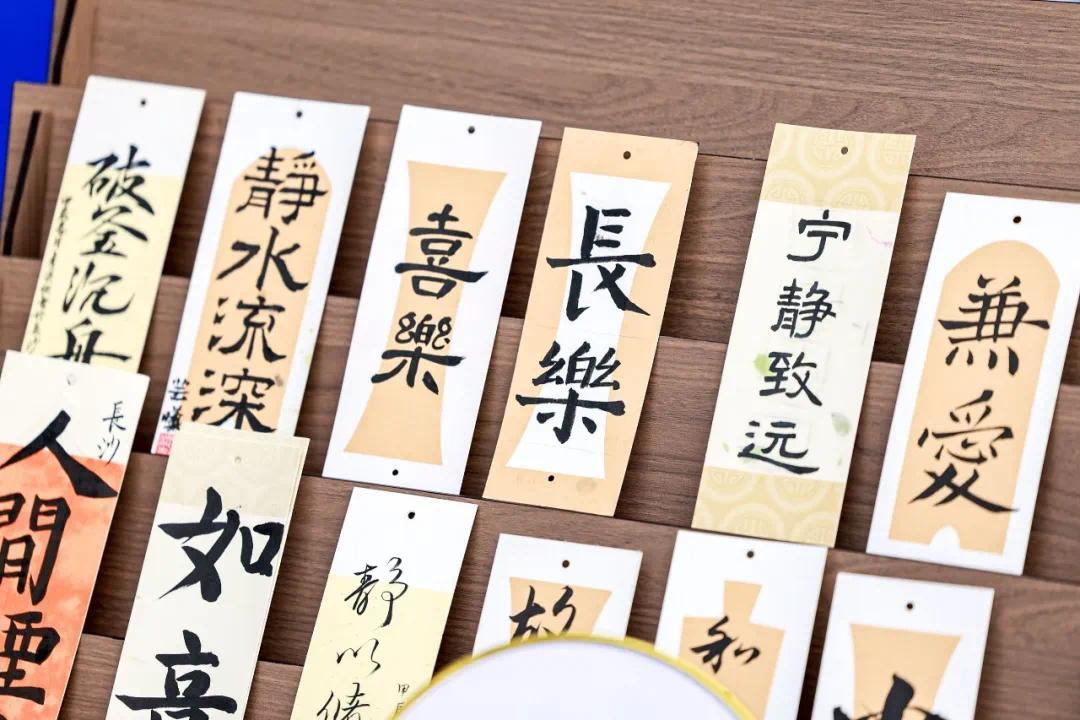 破釜沉舟
靜水流深
芸曦
喜樂
長樂
宁静致远
兼愛
長沙
人間煙
如意
静以脩
和